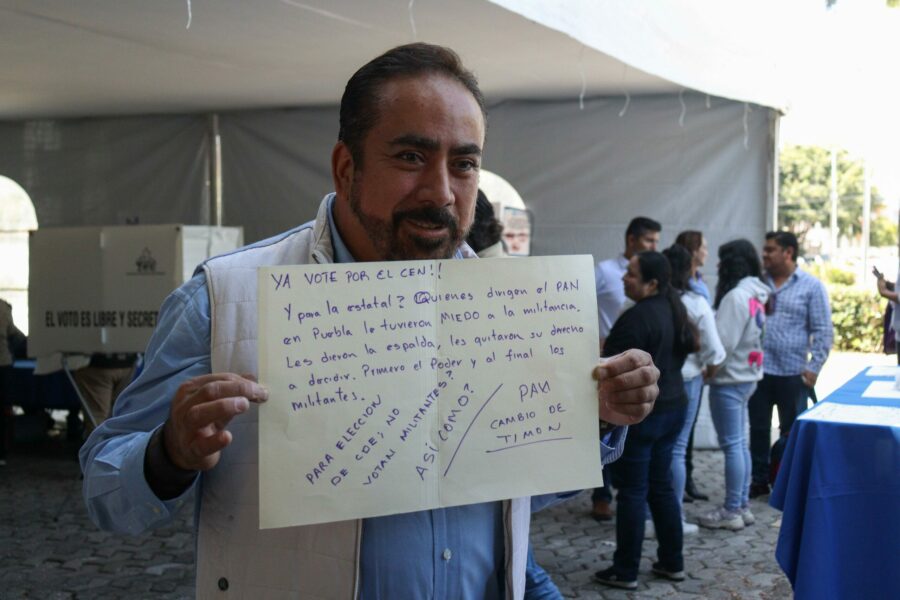 YA VOTE POR EL CEN!!
Y para la estatal? Quienes dirigen el PAN
en Puebla le tuvieron MIEDO a la militancia.
Les dieron la espalda, les quitaron su derecho
a decidir. Primero el Poder y al final los
militantes.
PARA ELECCION
DE CDE; NO
VOTAN MILITANTES?
ASÍ COMO?
PAN
CAMBIO DE
TIMON
EL VOTO ES LIBRE Y SECRE